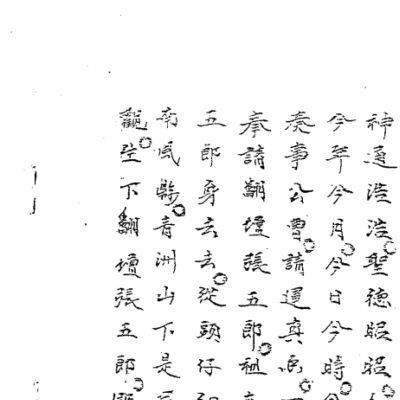 神通浩浩聖德昭昭
今年今月今日今時
奏事公曹請運真炁
奉請翻壇張五郎祖
五郎身云去從頭仔
南風青洲山下是
下翻壇張五郎